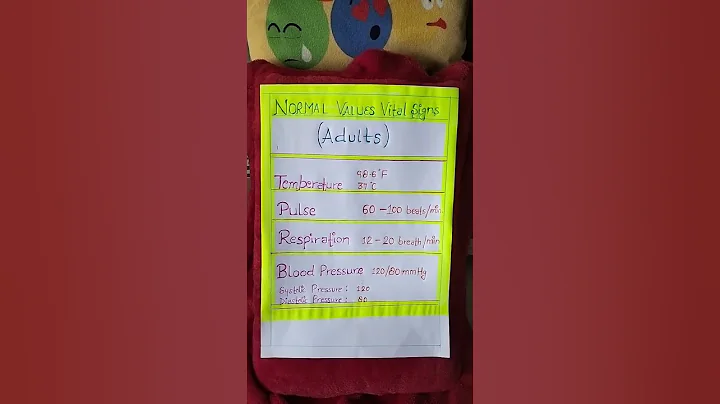 NORMAL VALUES Vital Signs
(Adults)
98.6°F
Temperature 37°C
Pulse 60-100 beats/min
Respiration 12-20 breath/min
Blood Pressure 120/80 mmHg
Systolic Pressure: 120
Diastolic Pressure: 80